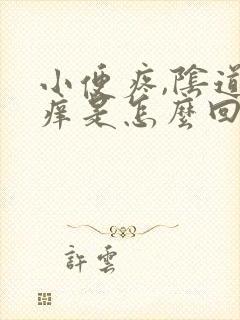 小便疼,陰道
痒是怎麼回
許雲